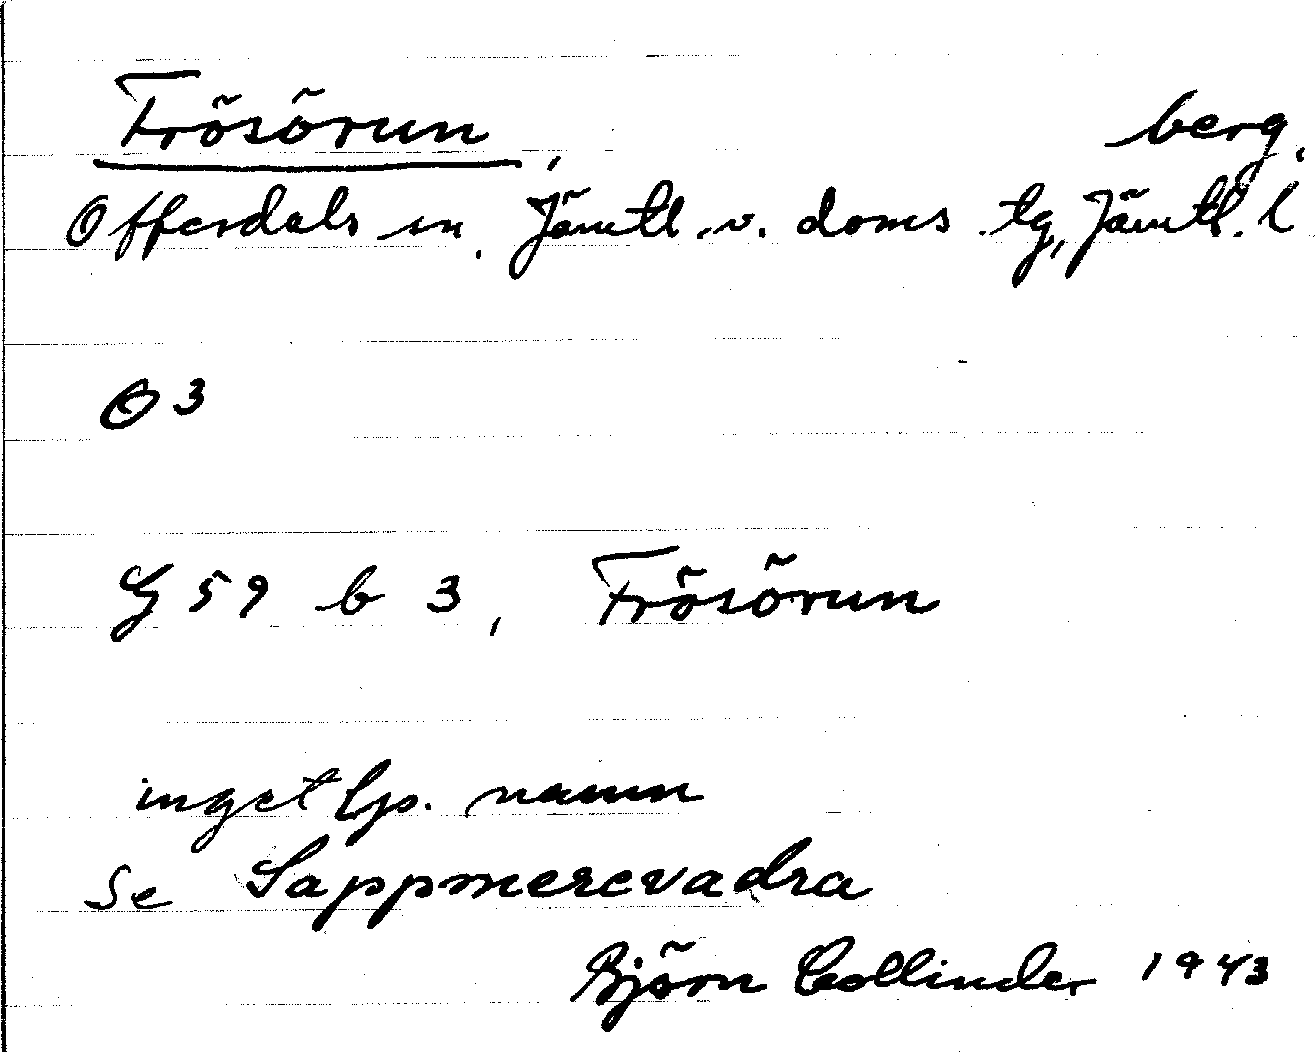 Frösörun, berg,
Offerdals sn. Jämtl. v. doms. tg, Jämtl. l
O 3
G 59 b 3, Frösörun
inget lp. namn
Se Sappmerevadra
Björn Collinder 1943